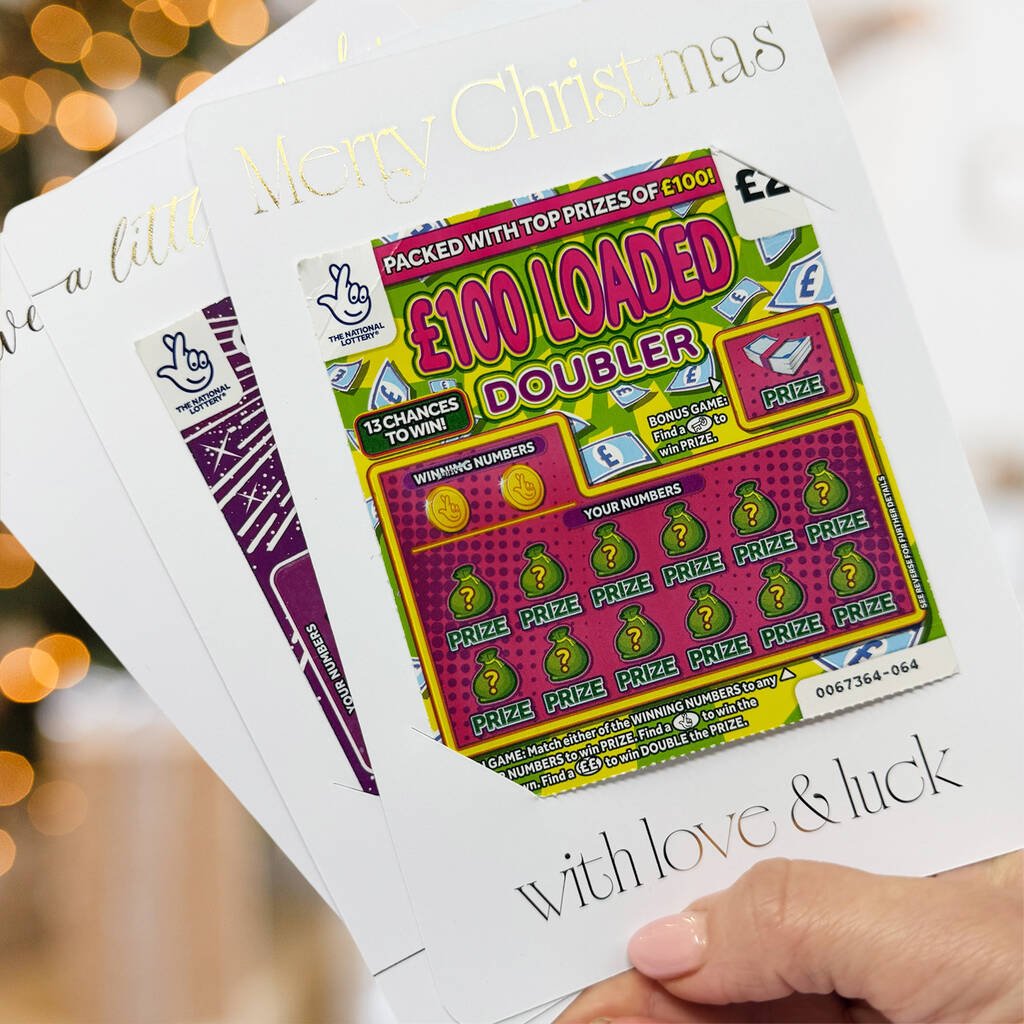 Merry Christmas
a little
THE NATIONAL
LOTTERY®
YOUR NUMBERS
PACKED WITH TOP PRIZES OF £100!
£2
THE NATIONAL
LOTTERY®
£100 LOADED
DOUBLER
13 CHANCES
TO WIN!
BONUS GAME:
Find a to
win PRIZE.
PRIZE
WINNING NUMBERS
YOUR NUMBERS
PRIZE PRIZE PRIZE PRIZE PRIZE PRIZE
PRIZE PRIZE PRIZE PRIZE PRIZE PRIZE
SEE REVERSE FOR FURTHER DETAILS
GAME: Match either of the WINNING NUMBERS to any
NUMBERS to win PRIZE. Find a to win the
wn. Find a ££ to win DOUBLE the PRIZE.
0067364-064
with love & luck